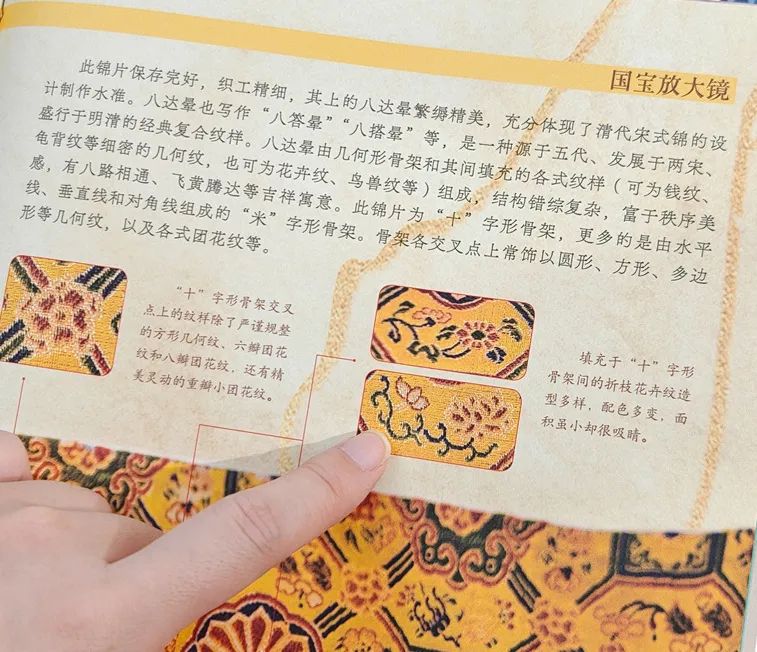 国宝放大镜
此锦片保存完好，织工精细，其上的八达晕繁缛精美，充分体现了清代宋式锦的设
计制作水准。八达晕也写作“八答晕”“八搭晕”等，是一种源于五代、发展于两宋、
盛行于明清的经典复合纹样。八达晕由几何形骨架和其间填充的各式纹样（可为钱纹、
龟背纹等细密的几何纹，也可为花卉纹、鸟兽纹等）组成，结构错综复杂，富于秩序美
感，有八路相通、飞黄腾达等吉祥寓意。此锦片为“十”字形骨架，更多的是由水平
线、垂直线和对角线组成的“米”字形骨架。骨架各交叉点上常饰以圆形、方形、多边
形等几何纹，以及各式团花纹等。
“十”字形骨架交叉
点上的纹样除了严谨规整
的方形几何纹、六瓣团花
纹和八瓣团花纹，还有精
美灵动的重瓣小团花纹。
填充于“十”字形
骨架间的折枝花卉纹造
型多样，配色多变，面
积虽小却很吸睛。